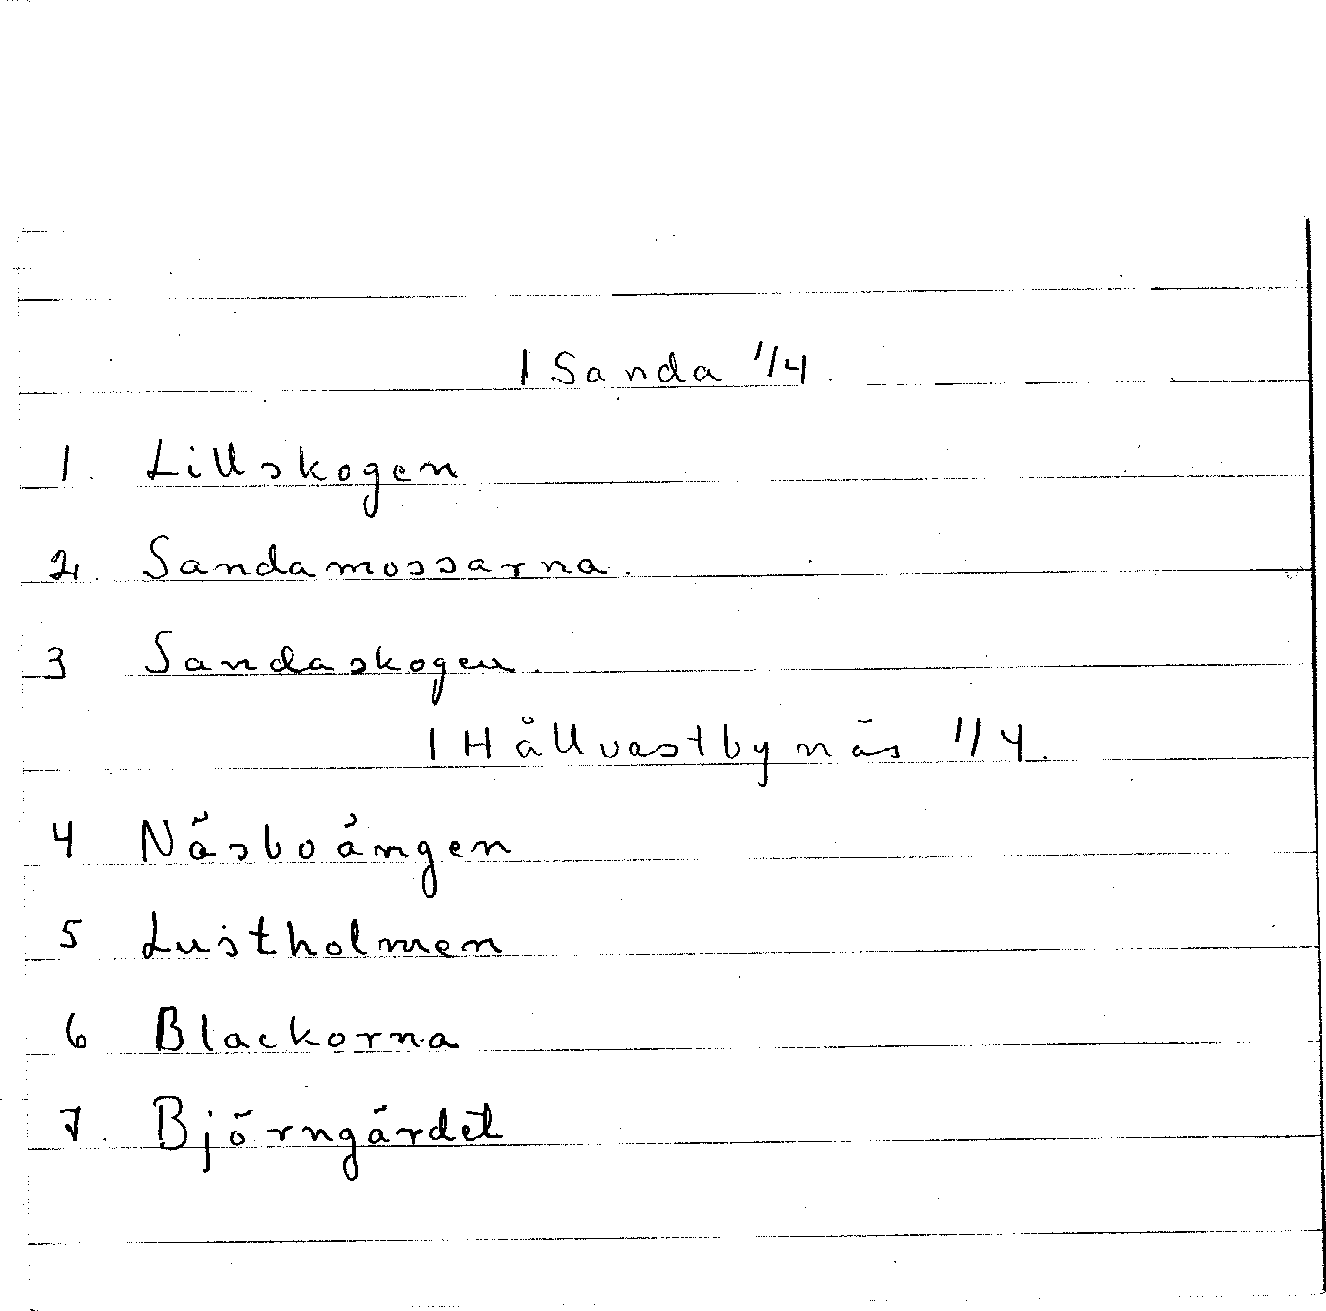 1 Sanda 1/4.
1. Lillskogen
2. Sandamossarna.
3 Sandaskogen.
1 Hållvastbynäs 1/4.
4 Näsboängen
5 Lustholmen
6 Blackorna
7. Björngärdet